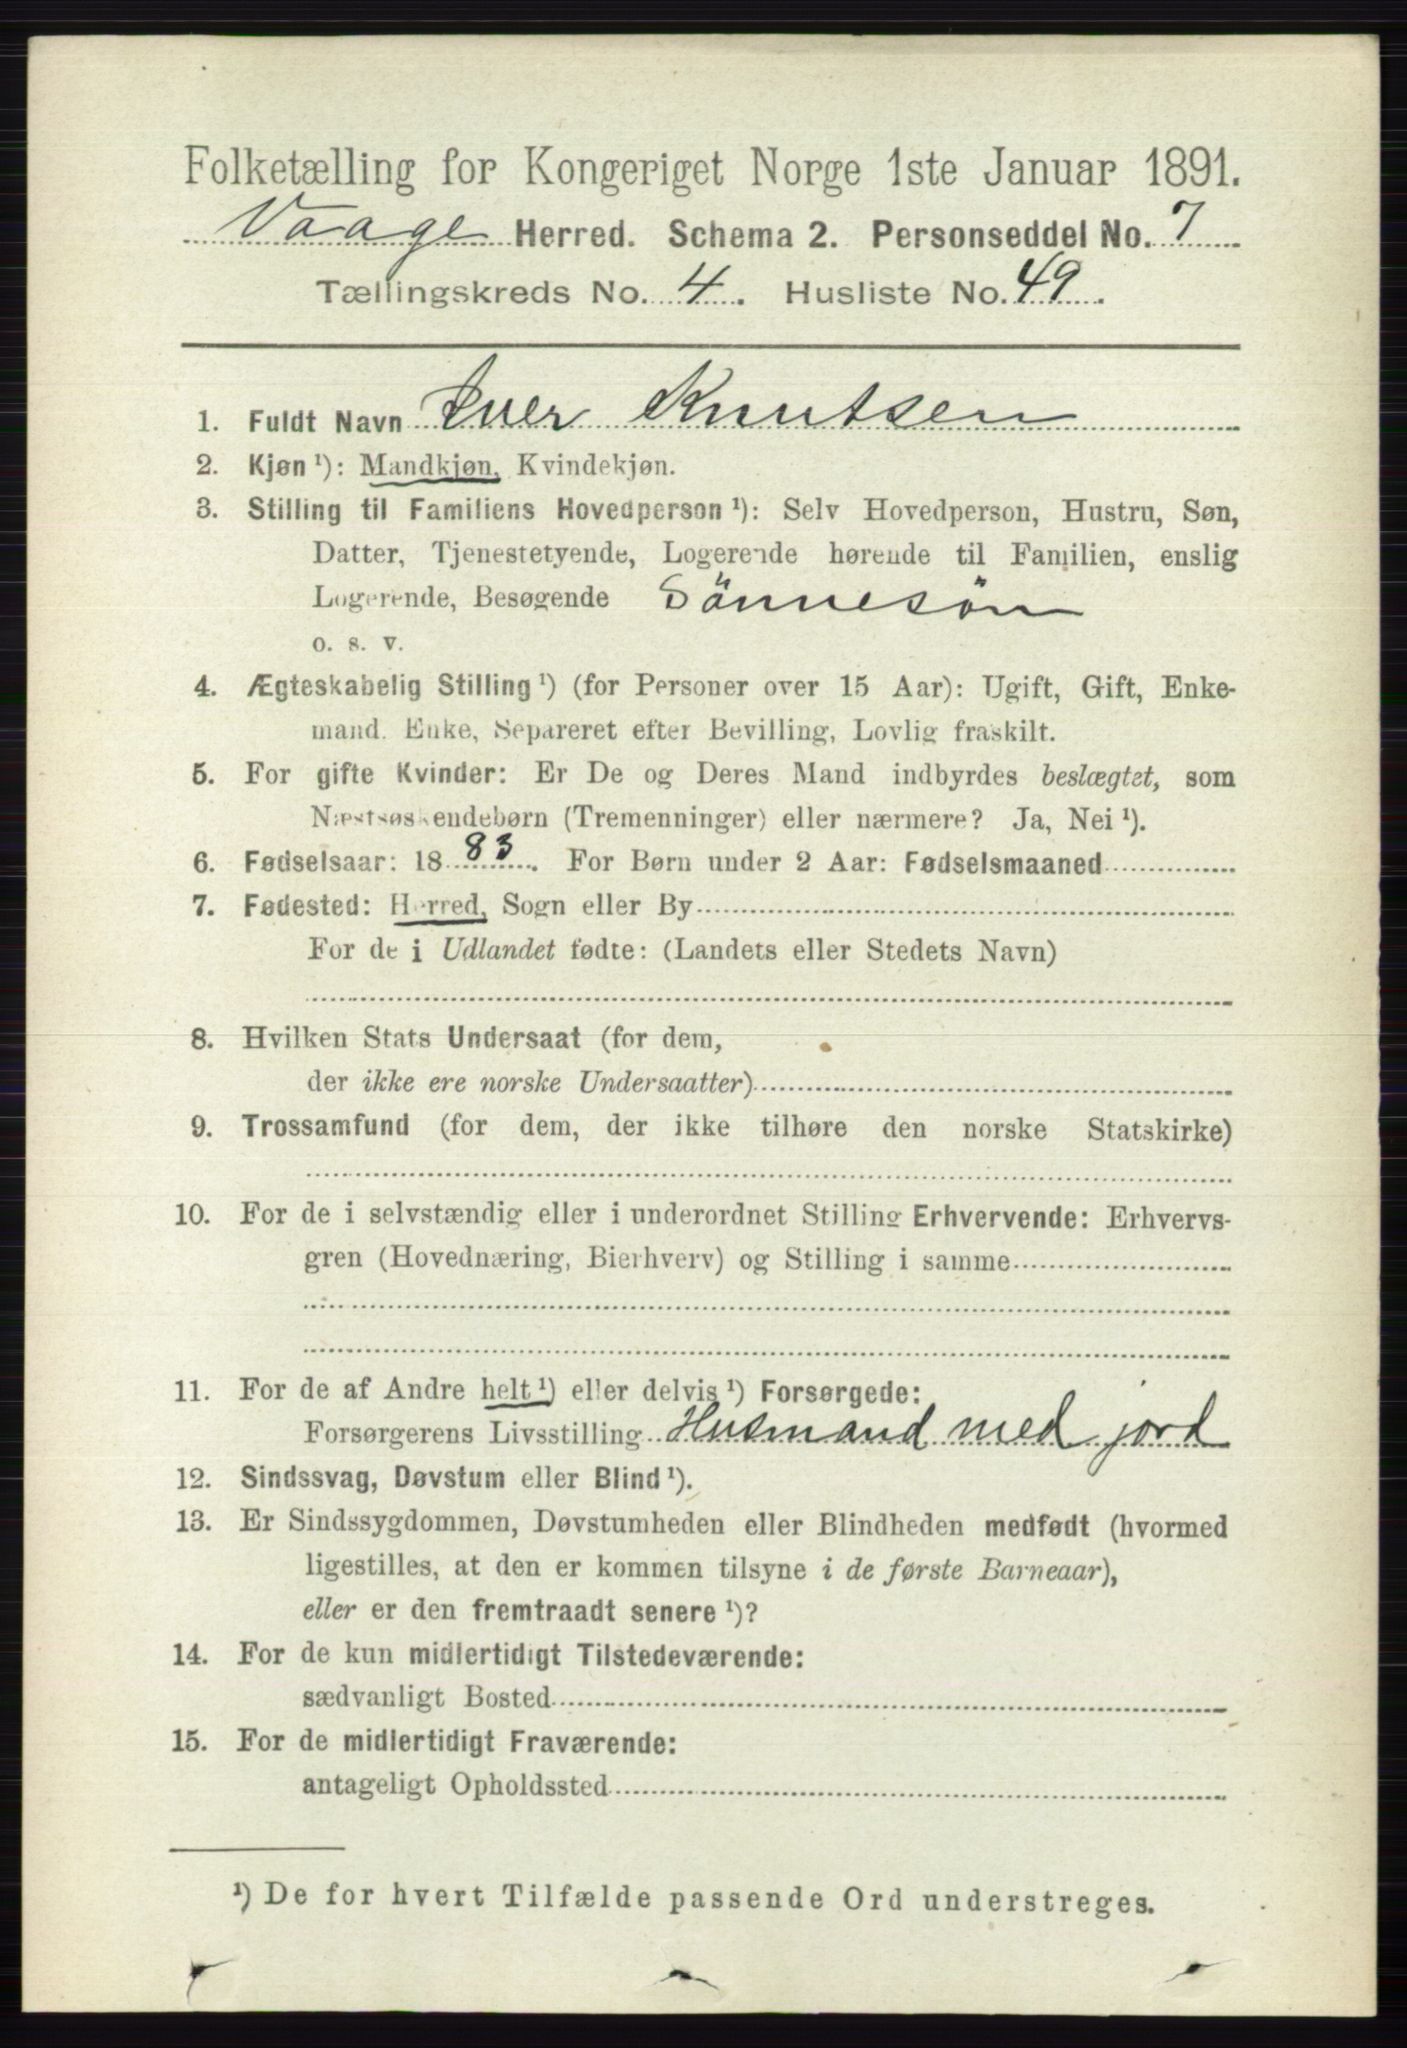 Folketælling for Kongeriget Norge 1ste Januar 1891.
Vaage Herred. Schema 2. Personseddel No. 7
Tællingskreds No. 4. Husliste No. 49.
1. Fuldt Navn Iver Knutsen
2. Kjøn ¹): Mandkjøn, Kvindekjøn.
3. Stilling til Familiens Hovedperson ¹): Selv Hovedperson, Hustru, Søn,
Datter, Tjenestetyende, Logerende hørende til Familien, enslig
Logerende, Besøgende Sönnesön
o. s. v.
4. Ægteskabelig Stilling ¹) (for Personer over 15 Aar): Ugift, Gift, Enke-
mand, Enke, Separeret efter Bevilling, Lovlig fraskilt.
5. For gifte Kvinder: Er De og Deres Mand indbyrdes beslægtet, som
Næstsøskendebørn (Tremenninger) eller nærmere? Ja, Nei ¹).
6. Fødselsaar: 1883. For Børn under 2 Aar: Fødselsmaaned
7. Fødested: Herred, Sogn eller By
For de i Udlandet fødte: (Landets eller Stedets Navn)
8. Hvilken Stats Undersaat (for dem,
der ikke ere norske Undersaatter)
9. Trossamfund (for dem, der ikke tilhøre den norske Statskirke)
10. For de i selvstændig eller i underordnet Stilling Erhvervende: Erhvervs-
gren (Hovednæring, Bierhverv) og Stilling i samme
11. For de af Andre helt ¹) eller delvis ¹) Forsørgede:
Forsørgerens Livsstilling Husmand med jord
12. Sindssvag, Døvstum eller Blind ¹).
13. Er Sindssygdommen, Døvstumheden eller Blindheden medfødt (hvormed
ligestilles, at den er kommen tilsyne i de første Barneaar),
eller er den fremtraadt senere ¹)?
14. For de kun midlertidigt Tilstedeværende:
sædvanligt Bosted
15. For de midlertidigt Fraværende:
antageligt Opholdssted
¹) De for hvert Tilfælde passende Ord understreges.